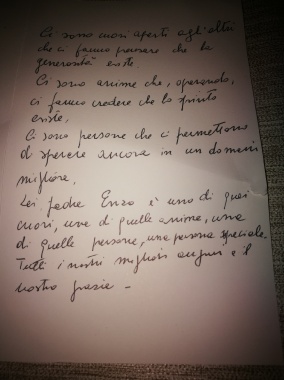 Ci sono cuori aperti agli altri
che ci fanno pensare che la
generosità esiste.
Ci sono anime che, operando,
ci fanno credere che lo spirito
esiste,
Ci sono persone che ci permettono
di sperare ancora in un domani
migliore.
Lei padre Enzo è uno di quei
cuori, una di quelle anime, una
di quelle persone, una persona speciale.
Tutti i nostri migliori auguri e il
nostro grazie -